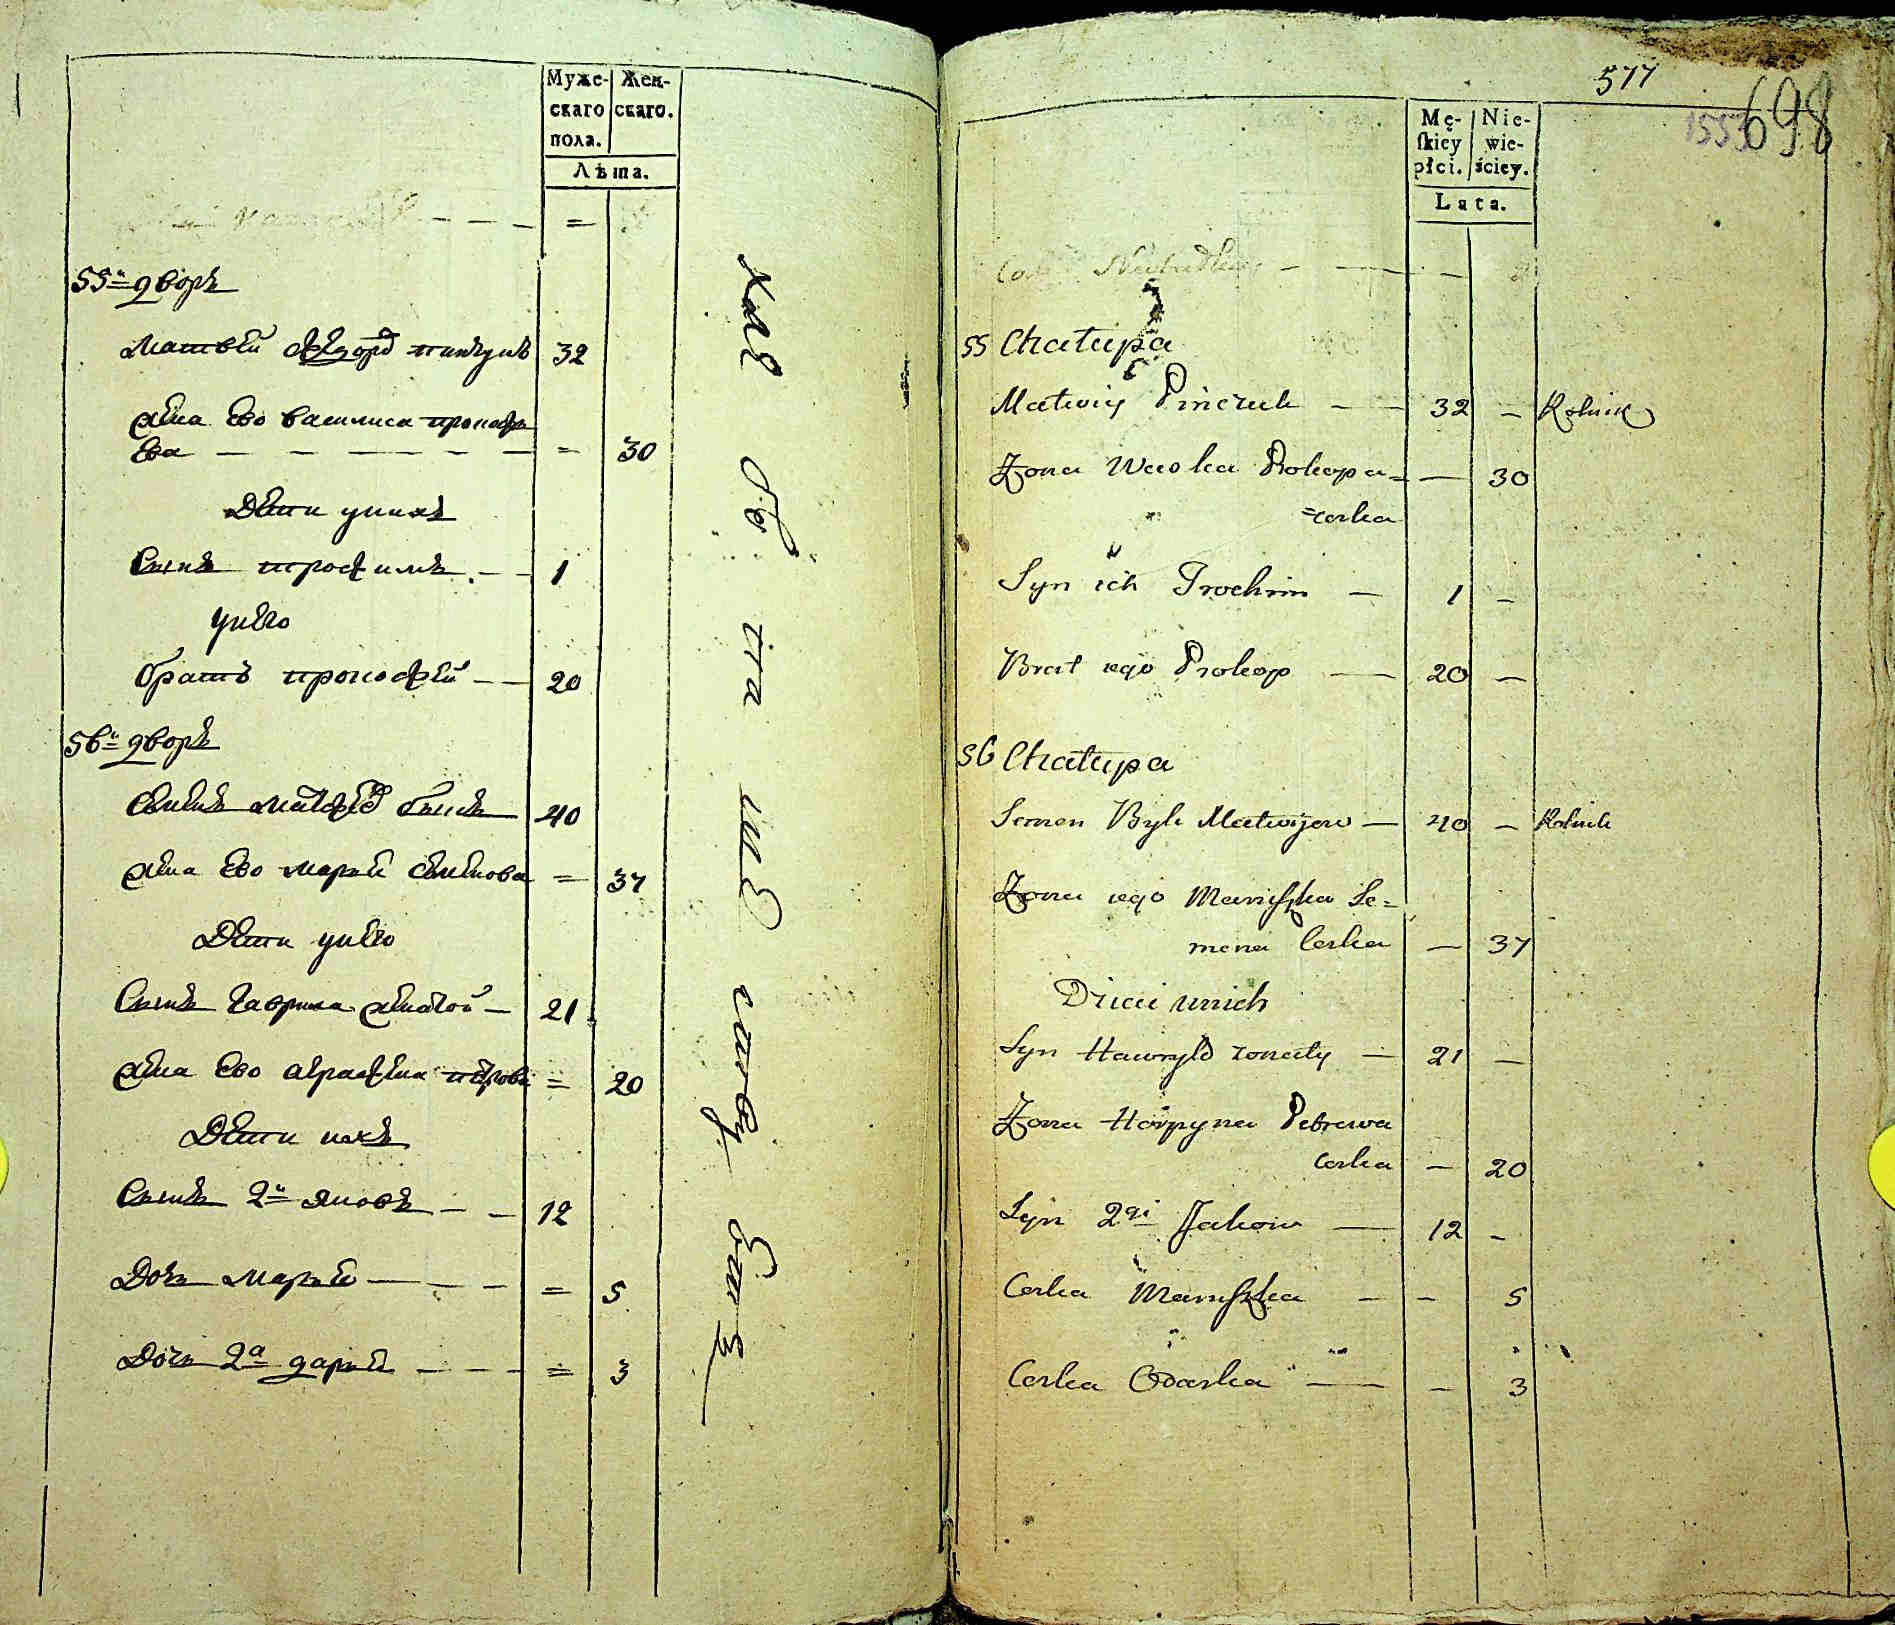 Муже-
скаго
пола.
Жен-
скаго.
Лѣта.
55й дворъ
Матвѣй Ѳедоров Пинчукъ 32
Жена Ево Василиса Прокофь
Ева — = 30
Дѣти уних
Сынъ Трофимъ — 1
У нево
Братъ Прокофей — 20
56й дворъ
Семенъ Матвеев Быкъ 40
Жена Ево Марья Семенова = 37
Дѣти у нево
Сынъ Гаврила Женатой — 21
Жена Ево Аграфена Петрова = 20
Дѣти ихъ
Сынъ 2й Яковъ — 12
Дочь Марья — = 5
Дочь 2а Дарья — = 3
577
1553
698
Mę-
ſkiey
płci.
Nie-
wie-
ściey.
Lata.
55 Chałupa
Matwiy Pinczuk — 32 — Rolnik
Żona Waska Prokopa= — 30
=corka
Syn ich Trochim — 1 —
Brat iego Prokop — 20 —
56 Chałupa
Semen Byk Matwijow — 40 — Rolnik
Żona iego Maruſzka Se=
mena Corka — 37
Dzieci unich
Syn Hawryło żonaty — 21 —
Żona Horpyna Petrowa
Corka — 20
Syn 2gi Jakow — 12 —
Corka Maruſzka — — 5
Corka Odarka — — 3